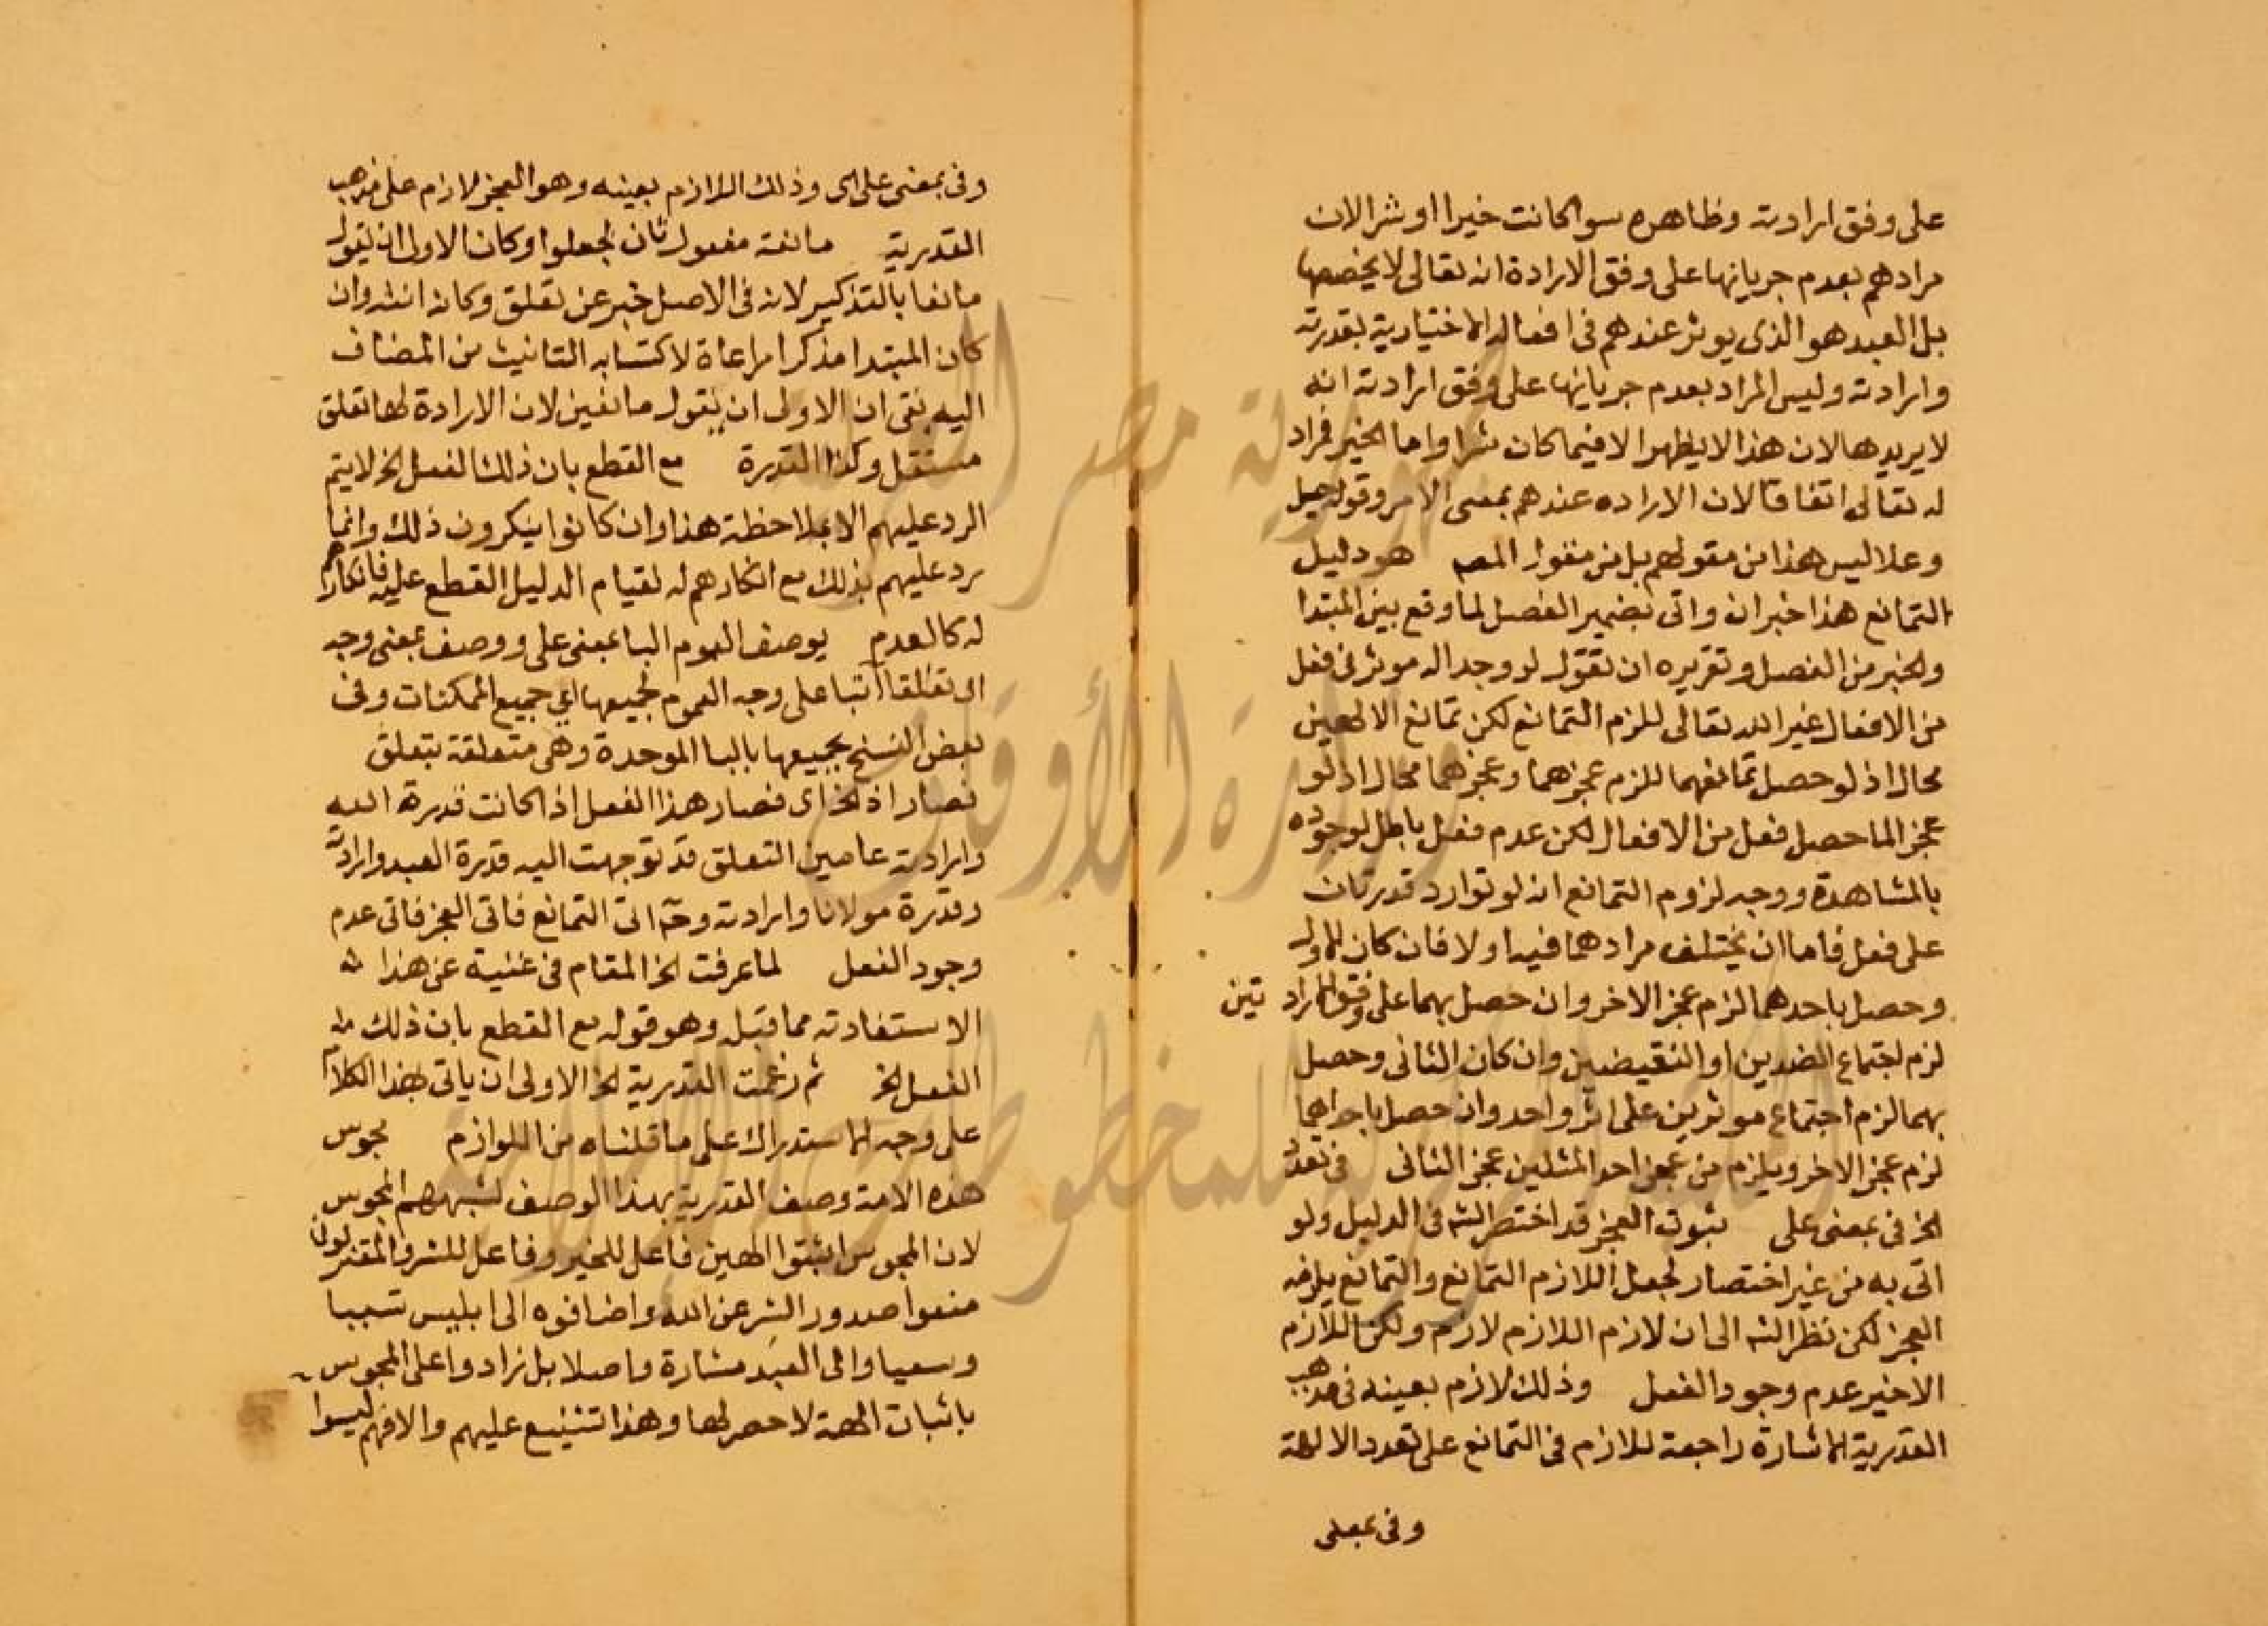 على وفق ارادته وظاهره سواكانت خيرا او شرا لان
مرادهم بعدم جريانها على وفق الارادة انه تعالى لا يخصصها
بل العبد هو الذى يوثر عندهم فى افعاله الاختيارية بقدرته
وارادته وليس المراد بعدم جريانها على وفق ارادته انه
لا يريدها لان هذا لا يظهر الا فيما كان شرا واما الخير فمراد
له تعالى اتفاقا لان الاراده عندهم بمعنى الامر وقوله جل
وعلا ليس هذا من مقولهم بل من مقول المص هو دليل
التمانع هذا خبران واتى بضمير الفصل لما وقع بين المبتدا
والخبر من الفصل وتقريره ان تقول لو وجد اله موثر فى فعل
من الافعال غير الله تعالى للزم التمانع لكن تمانع الالهين
محال اذ لو حصل تمانعهما للزم عجزهما وعجزهما محال اذ لو
عجزا لما حصل فعل من الافعال لكن عدم فعل باطل لوجوده
بالمشاهدة ووجه لزوم التمانع انه لو توارد قدرتان
على فعل فاما ان يختلف مرادهما فيه او لا فان كان الاول
وحصل باحدهما لزم عجز الاخر وان حصل بهما على وفق المراد تين
لزم اجتماع الضدين او النقيضين وان كان الثانى وحصل
بهما لزم اجتماع موثرين على اثر واحد وان حصل باحداهما
لزم عجز الاخر ويلزم من عجز احد المثلين عجز الثانى فى تعدد
الخ فى بمعنى على بثبوت العجز قد اختصر الش فى الدليل ولو
اتى به من غير اختصار لجعل اللازم التمانع والتمانع يلزمه
العجز لكن نظر الش الى ان لازم اللازم لازم ولكن اللازم
الاخير عدم وجود الفعل وذلك لازم بعينه فى مذهب
القدرية الاشارة راجعة للازم فى التمانع على تعدد الالهة
وفى بمعنى
وفى بمعنى على اى وذلك اللازم بعينه وهو العجز لازم على مذهب
القدرية مانعة مفعول ثان لجعلوا وكان الاولى ان يقول
مانعا بالتذكير لانه فى الاصل خبر عن تعلق وكانه انثه وان
كان المبتدا مذكرا مراعاة لاكتسابه التانيث من المضاف
اليه بقى ان الاولى ان يقول مانعين لان الارادة لها تعلق
مستقل وكذا القدرة مع القطع بان ذلك الفعل الخ لا يتم
الرد عليهم الا بملاحظة هذا وان كانوا ينكرون ذلك وانما
يرد عليهم بذلك مع انكارهم له لقيام الدليل القطع عليه فانكارهم
له كالعدم بوصف العموم البا بمعنى على ووصف بمعنى وجه
اى تعلقا اتيا على وجه العموم لجميعها اي جميع الممكنات وفى
بعض النسخ بجميعها بالبا الموحدة وهى متعلقة بتعلق
فصار اذ الخ اى فصار هذا الفعل اذا كانت قدرة الله
وارادته عامين التعلق قد توجهت اليه قدرة العبد وارادته
وقدرة مولانا وارادته وح اتى التمانع فاتى العجز فاتى عدم
وجود الفعل لما عرفت الخ المقام فى غنية عن هذا
الاستفادته مما قبله وهو قوله مع القطع بان ذلك
الفعل الخ ثم زعمت القدرية الخ الاولى ان ياتى بهذا الكلام
على وجه الاستدراك على ما قلناه من اللوازم مجوس
هذه الامة وصف القدرية بهذا الوصف لشبههم المجوس
لان المجوس اثبتوا الهين فاعل للخير وفاعل للشر والمعتزلة
منعوا صدور الشر عن الله واضافوه الى ابليس تسببا
وسعيا والى العبد مشارة واصلا بل زادوا على المجوس
باثبات الهة لا حصر لها وهذا تشنيع عليهم والا فهم ليسوا